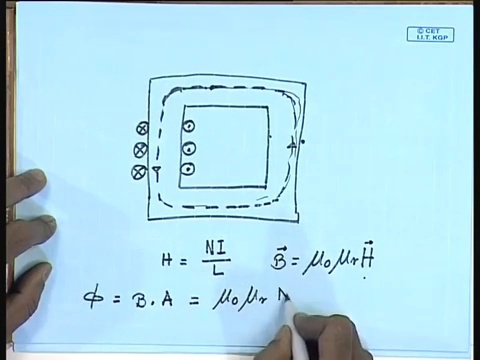 © CET
I.I.T. KGP
H = NI/L    B⃗ = μ₀μᵣH⃗
ϕ = B.A = μ₀μᵣ